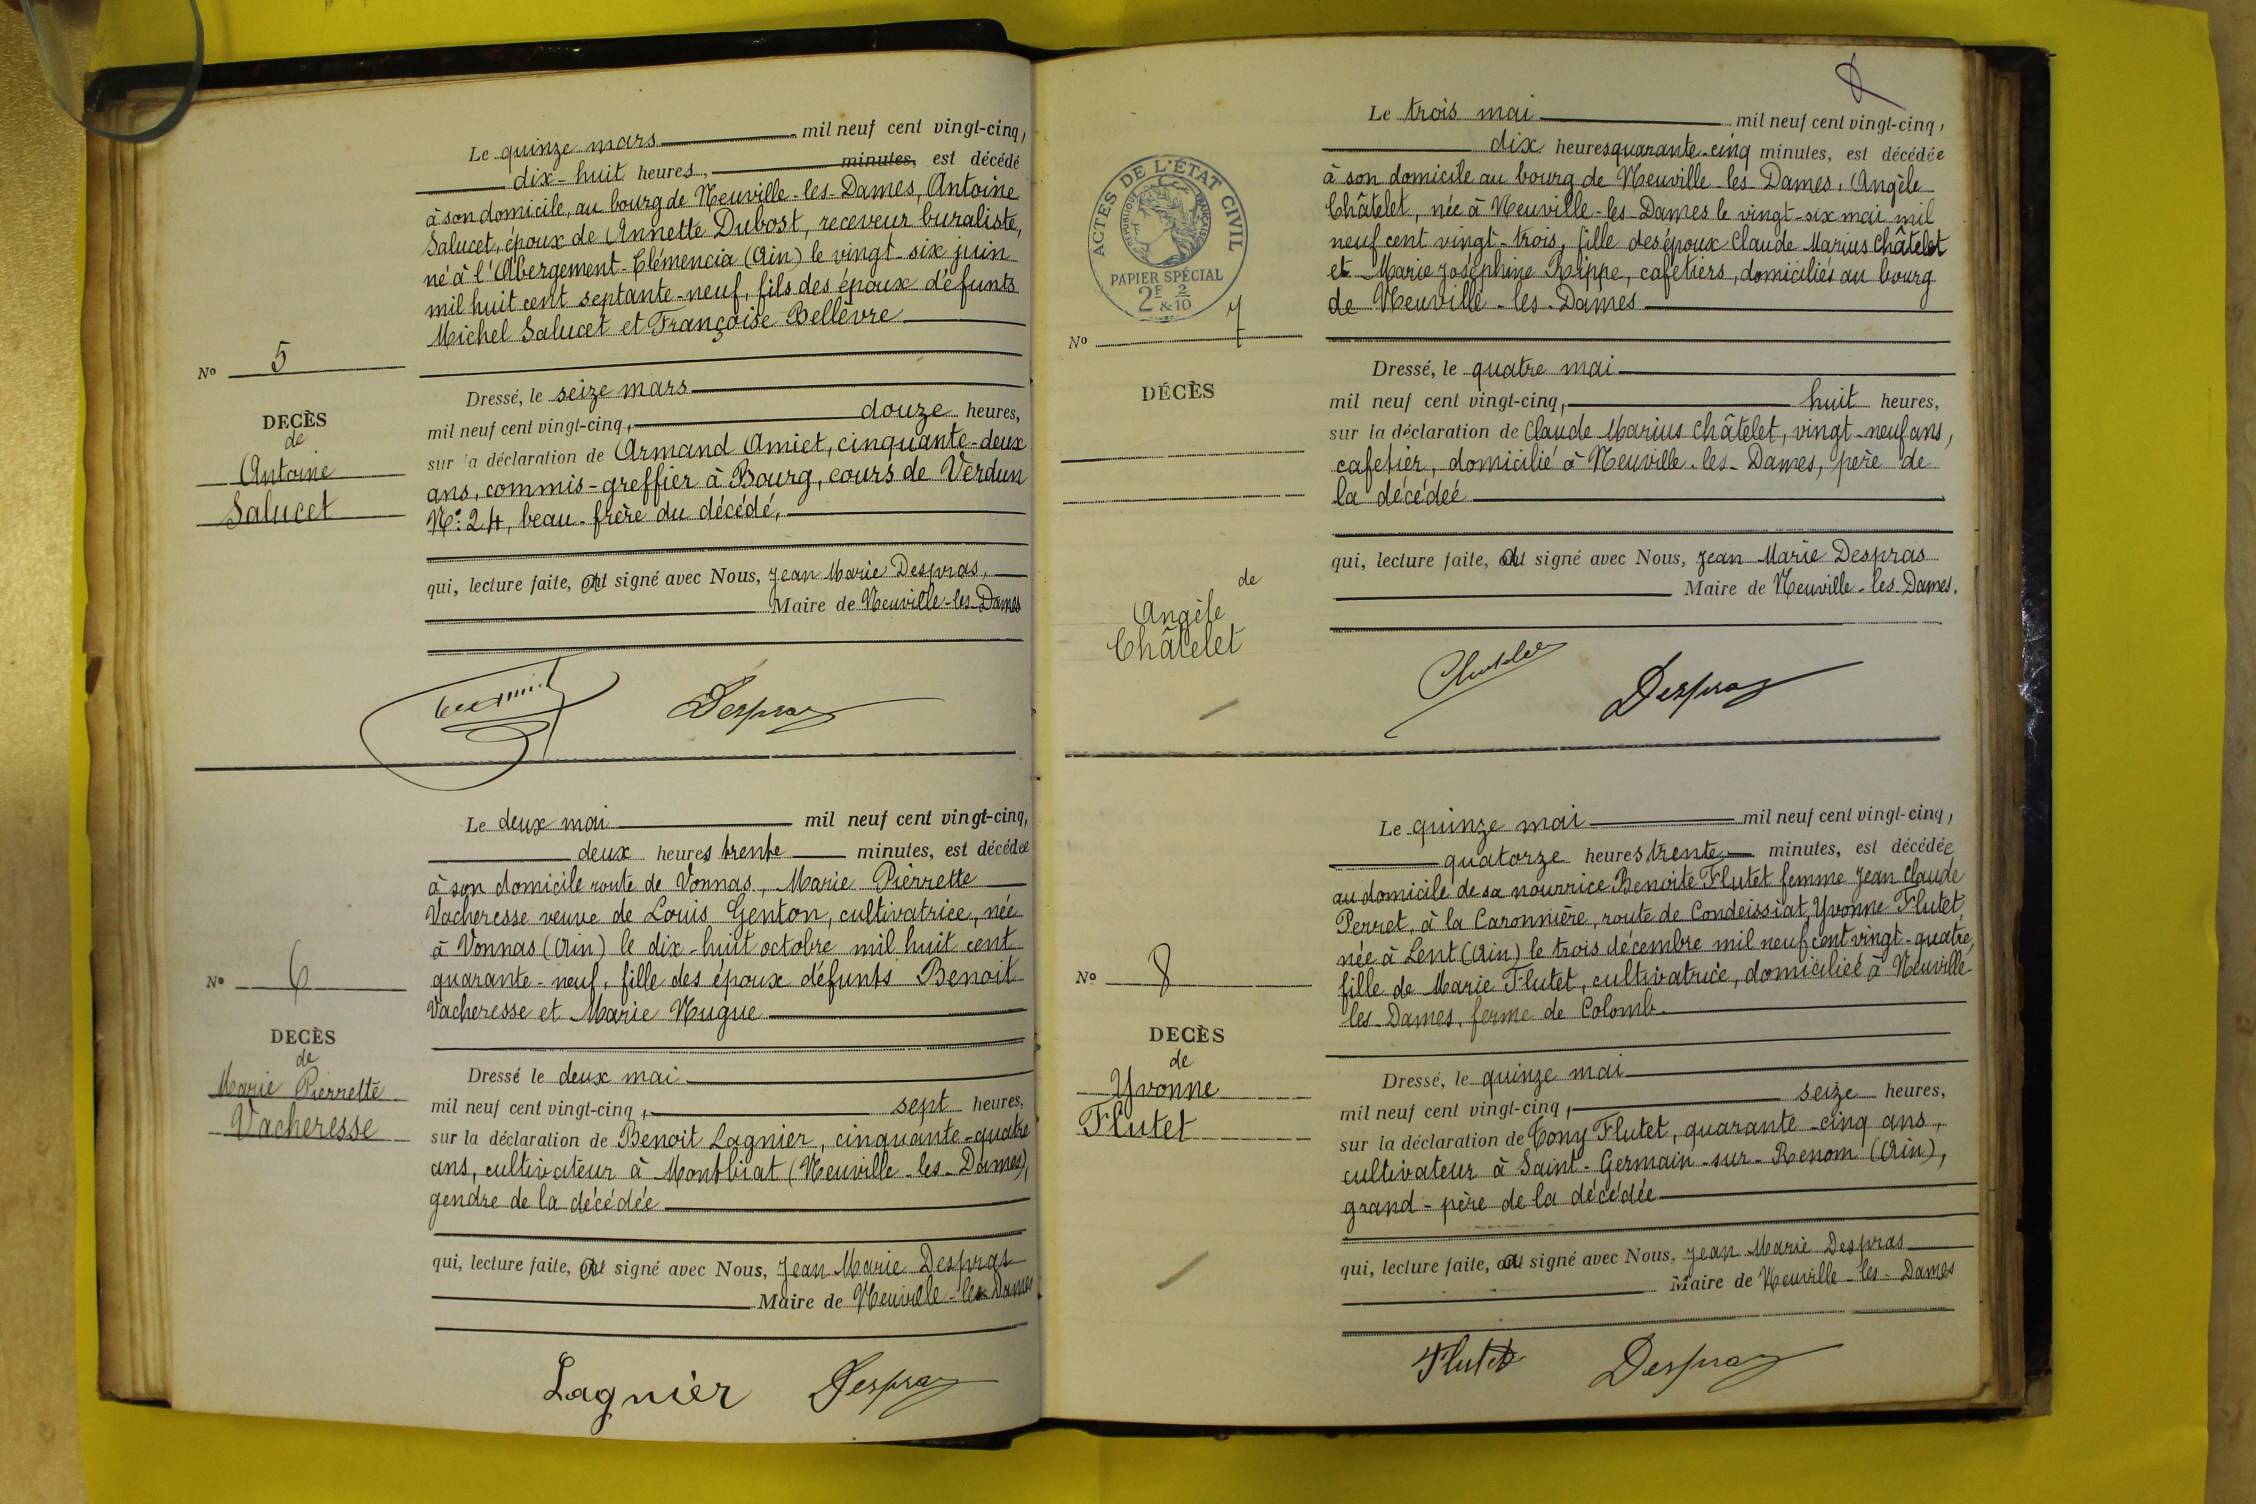 Le quinze mars mil neuf cent vingt-cinq,
dix-huit heures, minutes, est décédé
à son domicile, au bourg de Neuville-les-Dames, Antoine
Salucet, époux de Annette Dubost, receveur buraliste,
né à l'Abergement-Clémencia (Ain) le vingt-six juin
mil huit cent septante-neuf, fils des époux défunts
Michel Salucet et Françoise Bellèvre
No 5
DECÈS
de
Antoine
Salucet
Dressé, le seize mars
mil neuf cent vingt-cinq, douze heures,
sur la déclaration de Armand Amiet, cinquante-deux
ans, commis-greffier à Bourg, cours de Verdun
No: 24, beau-frère du décédé,
qui, lecture faite, a signé avec Nous, Jean Marie Despras,
Maire de Neuville-les-Dames
Despras
Le deux mai mil neuf cent vingt-cinq,
deux heures trente minutes, est décédée
à son domicile route de Vonnas, Marie Pierrette
Vacheresse veuve de Louis Genton, cultivatrice, née
à Vonnas (Ain) le dix-huit octobre mil huit cent
quarante-neuf, fille des époux défunts Benoit
Vacheresse et Marie Nugue
No 6
DECÈS
de
Marie Pierrette
Vacheresse
Dressé le deux mai
mil neuf cent vingt-cinq, sept heures,
sur la déclaration de Benoit Lagnier, cinquante-quatre
ans, cultivateur à Montbliat (Neuville-les-Dames),
gendre de la décédée
qui, lecture faite, a signé avec Nous, Jean Marie Despras
Maire de Neuville-les-Dames
Lagnier Despras
ACTES DE L'ÉTAT CIVIL
RÉPUBLIQUE FRANÇAISE
PAPIER SPÉCIAL
2F &2/10
Le trois mai mil neuf cent vingt-cinq,
dix heures quarante-cinq minutes, est décédée
à son domicile au bourg de Neuville-les-Dames, Angèle
Châtelet, née à Neuville-les-Dames le vingt-six mai mil
neuf cent vingt-trois, fille des époux Claude Marius Châtelet
et Marie Joséphine Rippe, cafetiers, domiciliés au bourg
de Neuville-les-Dames
No 7
DÉCÈS
de
Angèle
Châtelet
Dressé, le quatre mai
mil neuf cent vingt-cinq, huit heures,
sur la déclaration de Claude Marius Châtelet, vingt-neuf ans,
cafetier, domicilié à Neuville-les-Dames, père de
la décédeé
qui, lecture faite, a signé avec Nous, Jean Marie Despras
Maire de Neuville-les-Dames.
Chatelet Despras
Le quinze mai mil neuf cent vingt-cinq,
quatorze heures trente minutes, est décédée
au domicile de sa nourrice Benoite Flutet femme Jean Claude
Perret, à la Caronnière, route de Condeissiat, Yvonne Flutet,
née à Lent (Ain) le trois décembre mil neuf cent vingt-quatre,
fille de Marie Flutet, cultivatrice, domiciliée à Neuville-
les-Dames, ferme de Colomb.
No 8
DECÈS
de
Yvonne
Flutet
Dressé, le quinze mai
mil neuf cent vingt-cinq, seize heures,
sur la déclaration de Tony Flutet, quarante-cinq ans,
cultivateur à Saint-Germain-sur-Renom (Ain),
grand-père de la décédée
qui, lecture faite, a signé avec Nous, Jean Marie Despras
Maire de Neuville-les-Dames
Flutet Despras